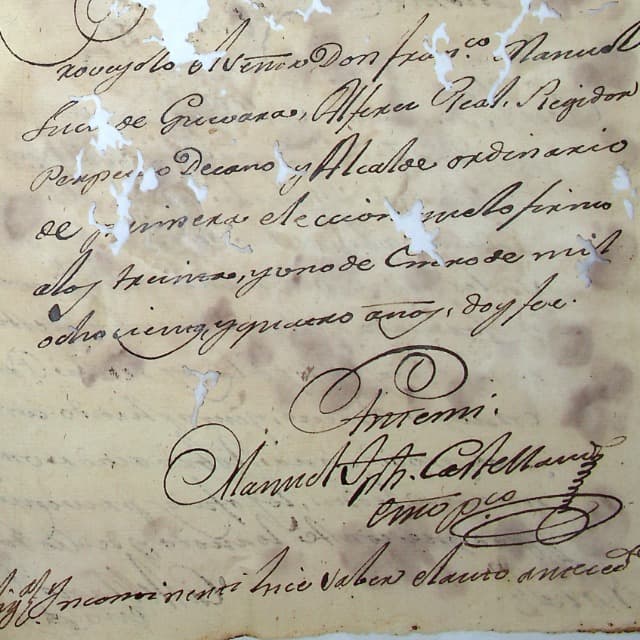 Proveyolo el Señor Don Fran.co Manuel
de Guevara, Alferez Real, Regidor
Perpetuo Decano y Alcalde ordinario
de primera eleccion que lo firmo
a los treinta, y uno de Enero de mil
ochocientos, y quatro años, doy fee.
Antemi.
Manuel Jph. Castellanos
Ess.no pco
Yncontinenti hice saber el auto anteced.te